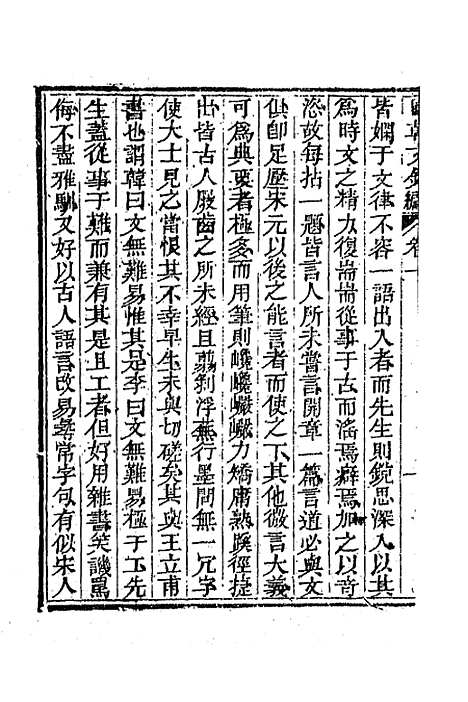 國朝文錄續 卷一
皆嫻于文律不容一語出入者而先生則銳思深入以其
爲時文之精力復耑耑從事于古而滛焉癖焉加之以奇
恣故每拈一題皆言人所未嘗言開章一篇言道必與文
俱卽足壓宋元以後之能言者而使之下其他微言大義
可爲典要者極多而用筆則巉巉巖巖力矯庸熟蹊徑捷
出皆古人殷齒之所未經且剪剃浮蕪行墨間無一冗字
使大士見之當恨其不幸早生未與切磋矣其與王立甫
書也謂韓曰文無難易惟其是李曰文無難易極于工先
生蓋從事于難而兼有其是且工者但好用雜書笑譏罵
侮不盡雅馴又好以古人語言改易尋常字句有似宋人